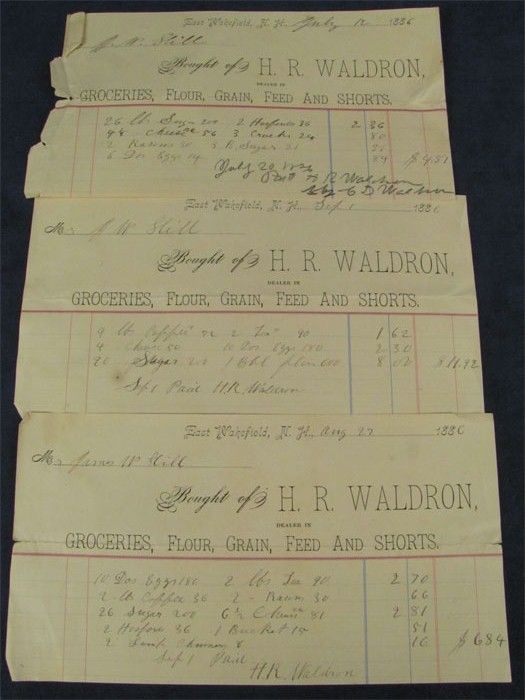 East Wakefield, N. H. July 12 1886
J. W. Still
Bought of H. R. WALDRON,
DEALER IN
GROCERIES, FLOUR, GRAIN, FEED AND SHORTS.
26 lbs Sugar 200 2 36
4 56 3 24 80
2 Raisins 30 3 B. Sugar 21 51
6 Doz Eggs 14 84 $ 4.51
July 20 1886
Paid H R Waldron
by C D Waldron
East Wakefield, N. H. Sep 1 1886
M J W Still
Bought of H. R. WALDRON,
DEALER IN
GROCERIES, FLOUR, GRAIN, FEED AND SHORTS.
9 lb 72 2 90 1 62
4 50 10 Doz Eggs 180 2 30
20 Sugar 200 1 Bbl 600 8 00 $ 11.92
Sep 1 Paid H. R. Waldron
East Wakefield, N. H., Aug 27 1886
M James W Still
Bought of H. R. WALDRON,
DEALER IN
GROCERIES, FLOUR, GRAIN, FEED AND SHORTS.
10 Doz Eggs 180 2 lbs Tea 90 2 70
2 lb 36 2 - Raisins 30 66
26 Sugar 200 6 ½ Cheese 81 2 81
2 36 1 Bucket 15 51
2 Lamp 8 16 $ 6.84
Sep 1 Paid
H. R. Waldron